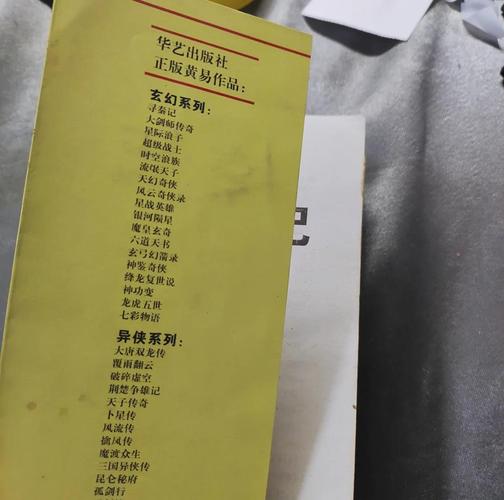 华艺出版社
正版黄易作品：
玄幻系列：
寻秦记
大剑师传奇
星际浪子
超级战士
时空浪族
流氓天子
天幻奇侠
风云奇侠录
星战英雄
银河陨星
魔皇玄奇
六道天书
玄弓幻箭录
神鉴奇侠
绛龙复世说
神功变
龙虎五世
七彩物语
异侠系列：
大唐双龙传
覆雨翻云
破碎虚空
荆楚争雄记
天子传奇
卜星传
风流传
擒凤传
魔渡众生
三国异侠传
昆仑秘府
孤剑行
记